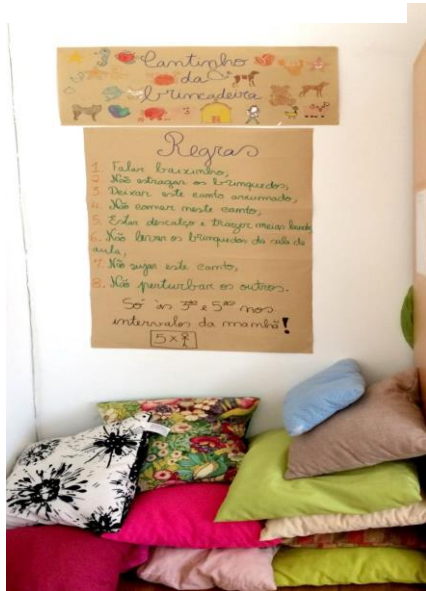 Cantinho
da
brincadeira
Regras
1. Falar baixinho;
2. Não estragar os brinquedos;
3. Deixar este canto arrumado;
4. Não comer neste canto;
5. Estar descalço e trazer meias
6. Não levar os brinquedos da sala de
aula;
7. Não sujar este canto;
8. Não perturbar os outros.
Só às 3ªs e 5ªs nos
intervalos da manhã!
5x